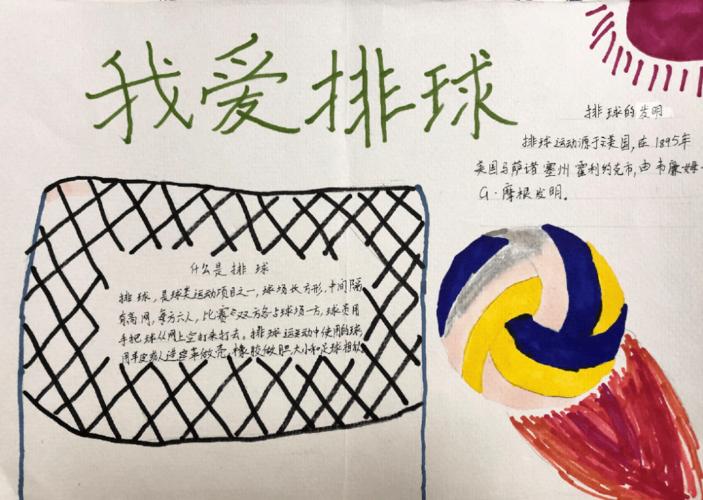 我爱排球
排球的发明
排球运动源于美国,在1895年
美国马萨诸塞州霍利约克市,由韦廉·姆·
G·摩根发明。
什么是排球
排球,是球类运动项目之一,球场长方形,中间隔
有高网,每方六人,比赛各双方各占球场一方,球员用
手把球从网上空打来打去。排球运动中使用的球,
用羊皮或人造革做壳,橡胶做胆,大小和足球相似。